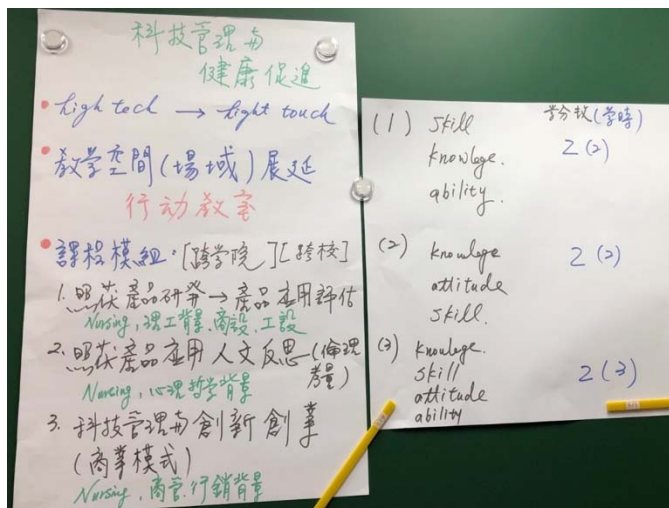 科技管理与
健康促進
• high tech → light touch
• 教学空間(場域)展延
行动教室
• 課程模組:[跨学院][跨校]
1. 照获產品研発→產品应用評估
Nursing,理工背景.商設.工設
2. 照获產品应用人文反思(倫理
考量)
Nursing,心理哲学背景
3. 科技管理与創新創業
(商業模式)
Nursing,商管.行銷背景
学分数(学時)
(1) skill 2(2)
knowlege.
ability.
(2) knowlege 2(2)
attitude
skill.
(3) knowlege.
skill 2(3)
attitude
ability